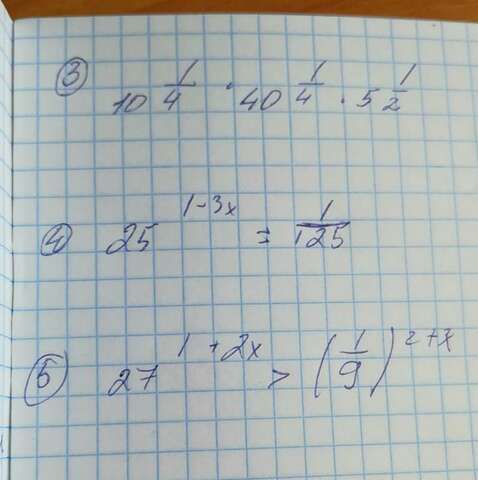 ③ 10^(1/4) · 40^(1/4) · 5^(1/2)
④ 25^(1-3x) = 1/125
⑤ 27^(1+2x) > (1/9)^(2+x)